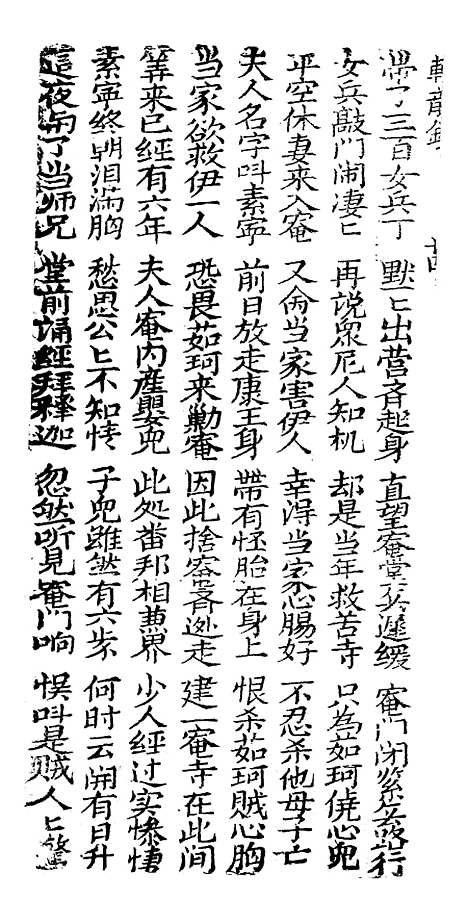 斬龍劍 十四
帶了三百女兵丁 默匕出营斉起身 直望庵堂 庵门闭紧
女兵敲门闹凄匕 再説眾尼人知机 却是当年救苦寺 只為茹珂侥心兜
平空休妻来入庵 又命当家害伊人 幸得当家心腸好 不忍杀他母子亡
夫人名字呌素寧 前日放走康王身 帶有怪胎在身上 恨杀茹珂贼心胸
当家欲救伊一人 恐畏茹珂来勦庵 因此捨寄斉逊走 建一庵寺在此间
筭来已經有六年 夫人庵内産嬰兜 此処畨邦相兼界 少人經过实惨悽
素寧终朝泪满胸 愁思公匕不知情 子兜雖然有六岁 何时云開有日升
這夜 当师兄 堂前誦經拜释迦 忽然听見庵门响 悮呌是贼人匕驚